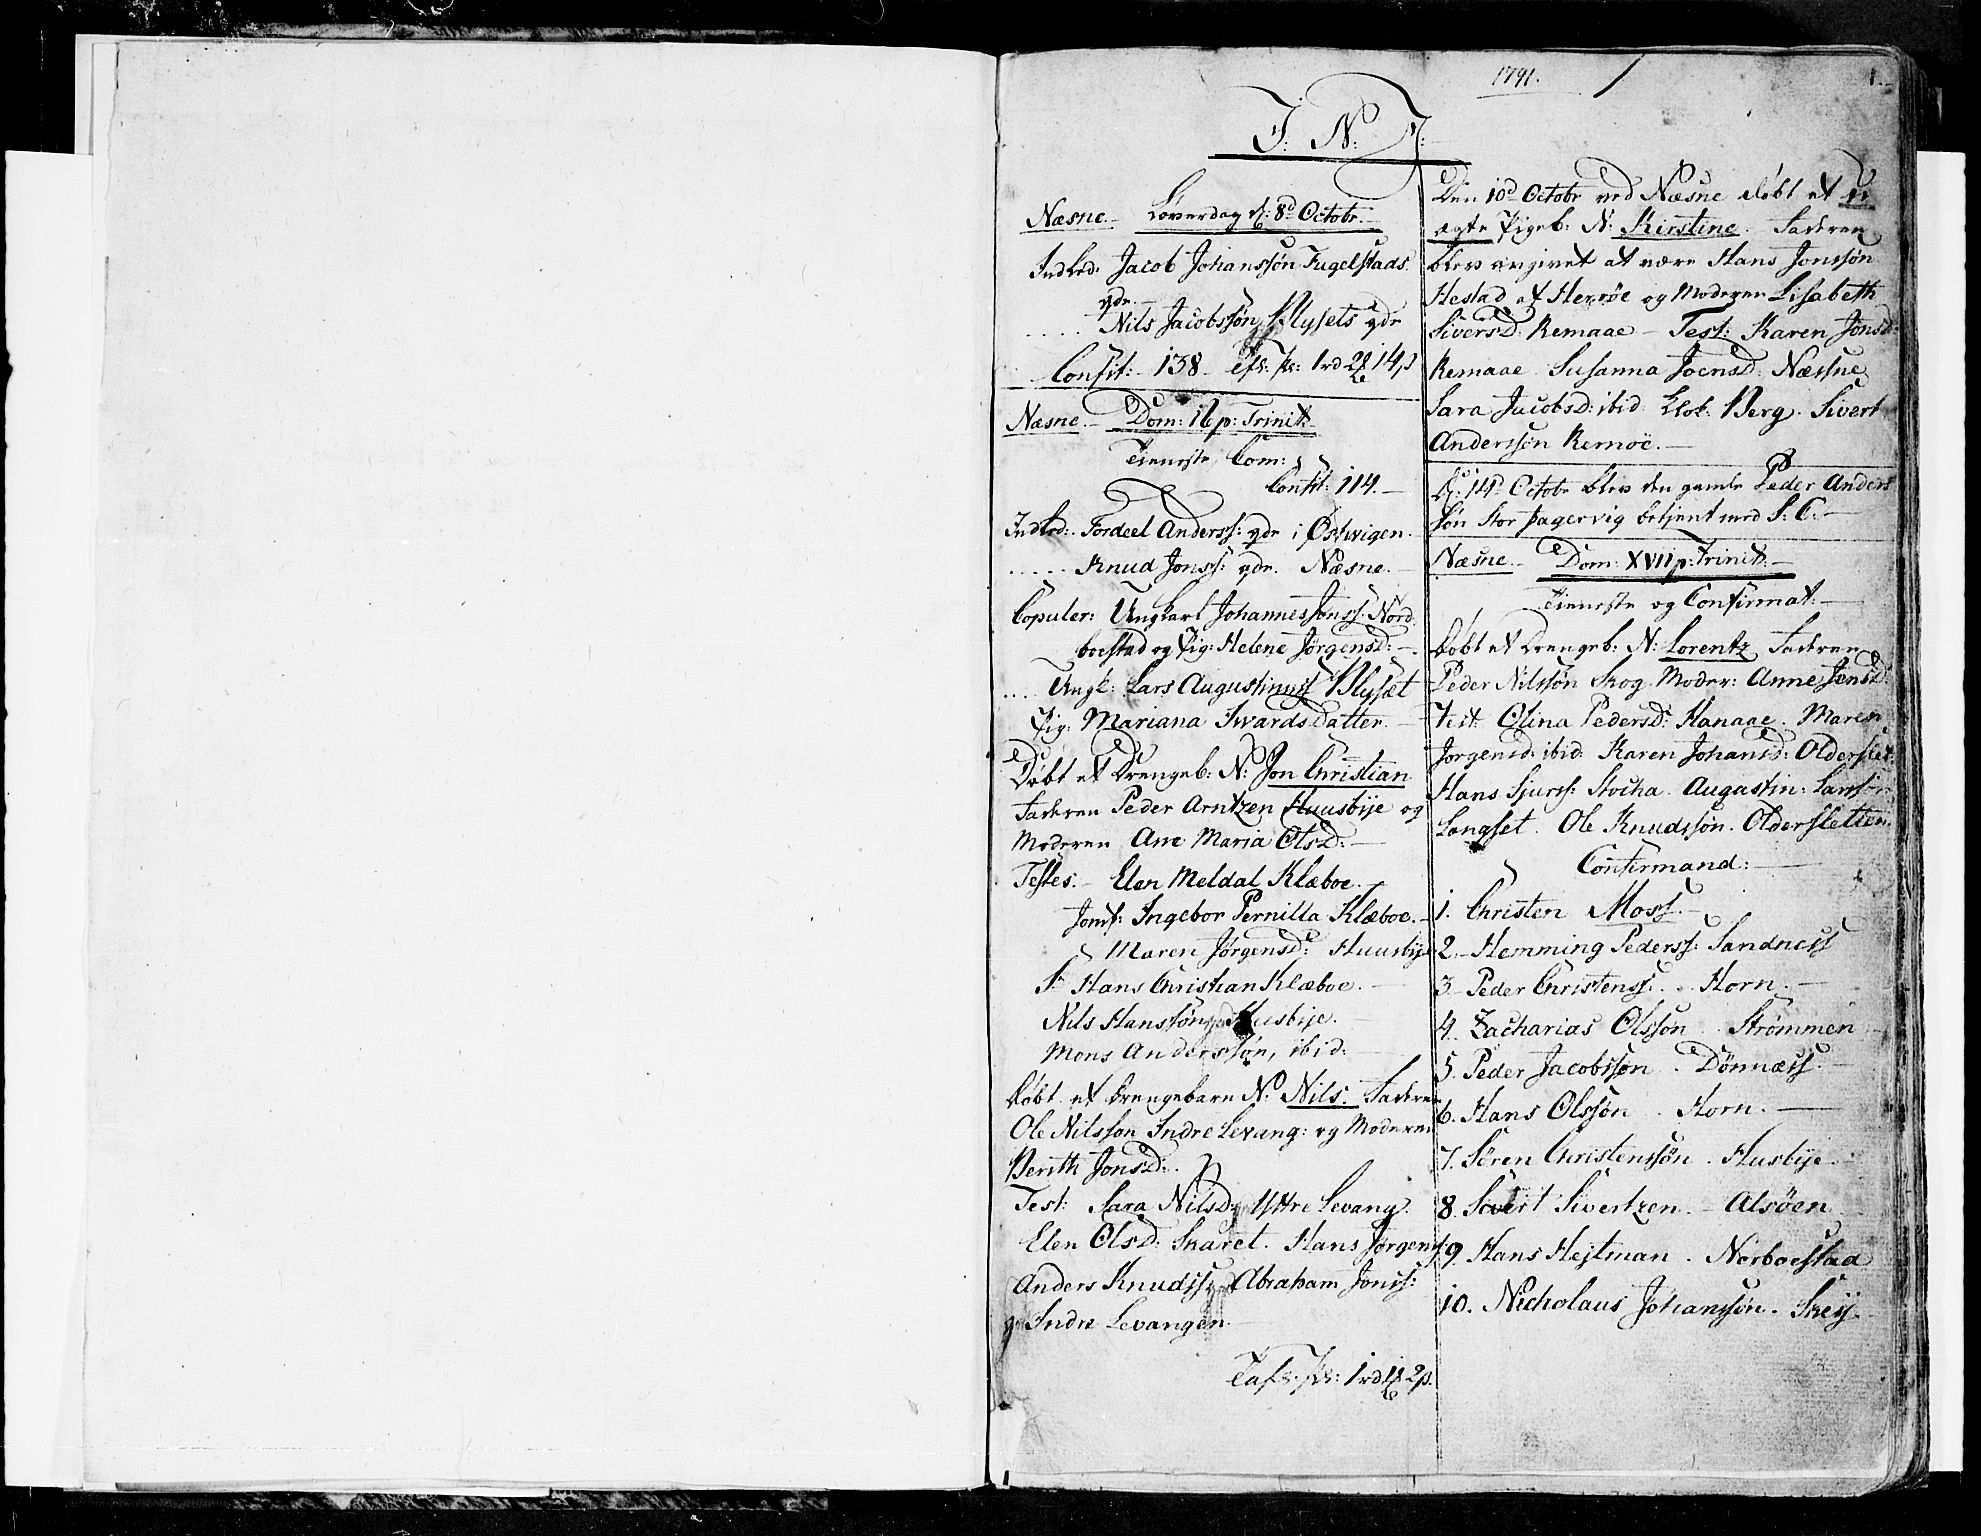 1791.
1.
I: N: J:
Næsne. Løverdag d: 8d Octobr.
Indled: Jacob Johanssøn Fugelstads
qde.
..... Nils Jacobssøn Blysets qde
Confit: 138 Tfl: ps: 1 rd 2 14 s
Næsne. Dom: 16 p: Trinit:
Tieneste, Com:
Confit: 114.
Indled: Tordeel Anderss: qde i Østwigen.
..... Knud Jonss: qde. Næsne.
Copuler: Ungkarl Johannes Jonss. Nord
boestad og Pig: Helene Jørgensd:
.... Ungk: Lars Augustinuss Blysæt
Pig: Mariana Iwards Datter.
Døbt et Drengeb: N: Jon Christian
Faderen Peder Arntzen Huusbye og
Moderen Ane Maria Olsd:
Testes. Elen Meldal Klæboe.
Jomf: Ingebor Pernilla Klæboe.
Maren Jørgensd: Huusbye
Sr Hans Christian Klæboe.
Nils Hanssøn Husbye.
Mons Anderssøn, ibid:
Døbt et Drengebarn N: Nils. Faderen
Ole Nilsson Indre Levang: og Moderen
Berith Jonsd:
Test: Sara Nilsd: Yttre Levang.
Elen Olsd: Skaret. Hans Jørgens:
Anders Knudss: Abraham Jonss:
Indre Levangen
Tafl: ps: 1 rd 1 2 s.
Den 10d Octobr ved Næsne døbt et u
ægte Pigeb: N: Kirstine. Faderen
blev angivet at være Hans Jonssøn
Hestad af Herrøe og Moderen Lisabeth
Siversd: Remaae - Test: Karen Jonsd:
Remaae. Susanna Joensd: Næssne
Sara Jacobsd: ibid. Klok: Berg. Sivert
Anderssøn Remoe.
d: 14d Octobr blev den gamle Peder Anders
søn Stor Hagervig betjent med S: C:
Næsne. Dom: XVII p: Trinit:
Tieneste og Confirmat:
Døbt et Drengeb: N: Lorentz Faderen
Peder Nilssøn Skog. Moder: Anne Jensd:
Test: Olina Pedersd: Hanaae. Maren
Jorgensd: ibid: Karen Johansd: Olderslet.
Hans Sjurss: Stocha. Augustin: Larssøn
Langset. Ole Knudssøn. Oldersletten.
Confirmand:
1. Christen Moss.
2. Hemming Pederss: Sandness
3. Peder Christenss. Horn.
4. Zacharias Olsson. Strømmen
5. Peder Jacobsson. Dönnæss.
6. Hans Olssøn. Horn.
7. Søren Christenssøn. Husbye.
8. Sivert Sivertzen. Alsöen
9. Hans Hejtman. Norboestad
10. Nicholaus Johanssøn. Skey.